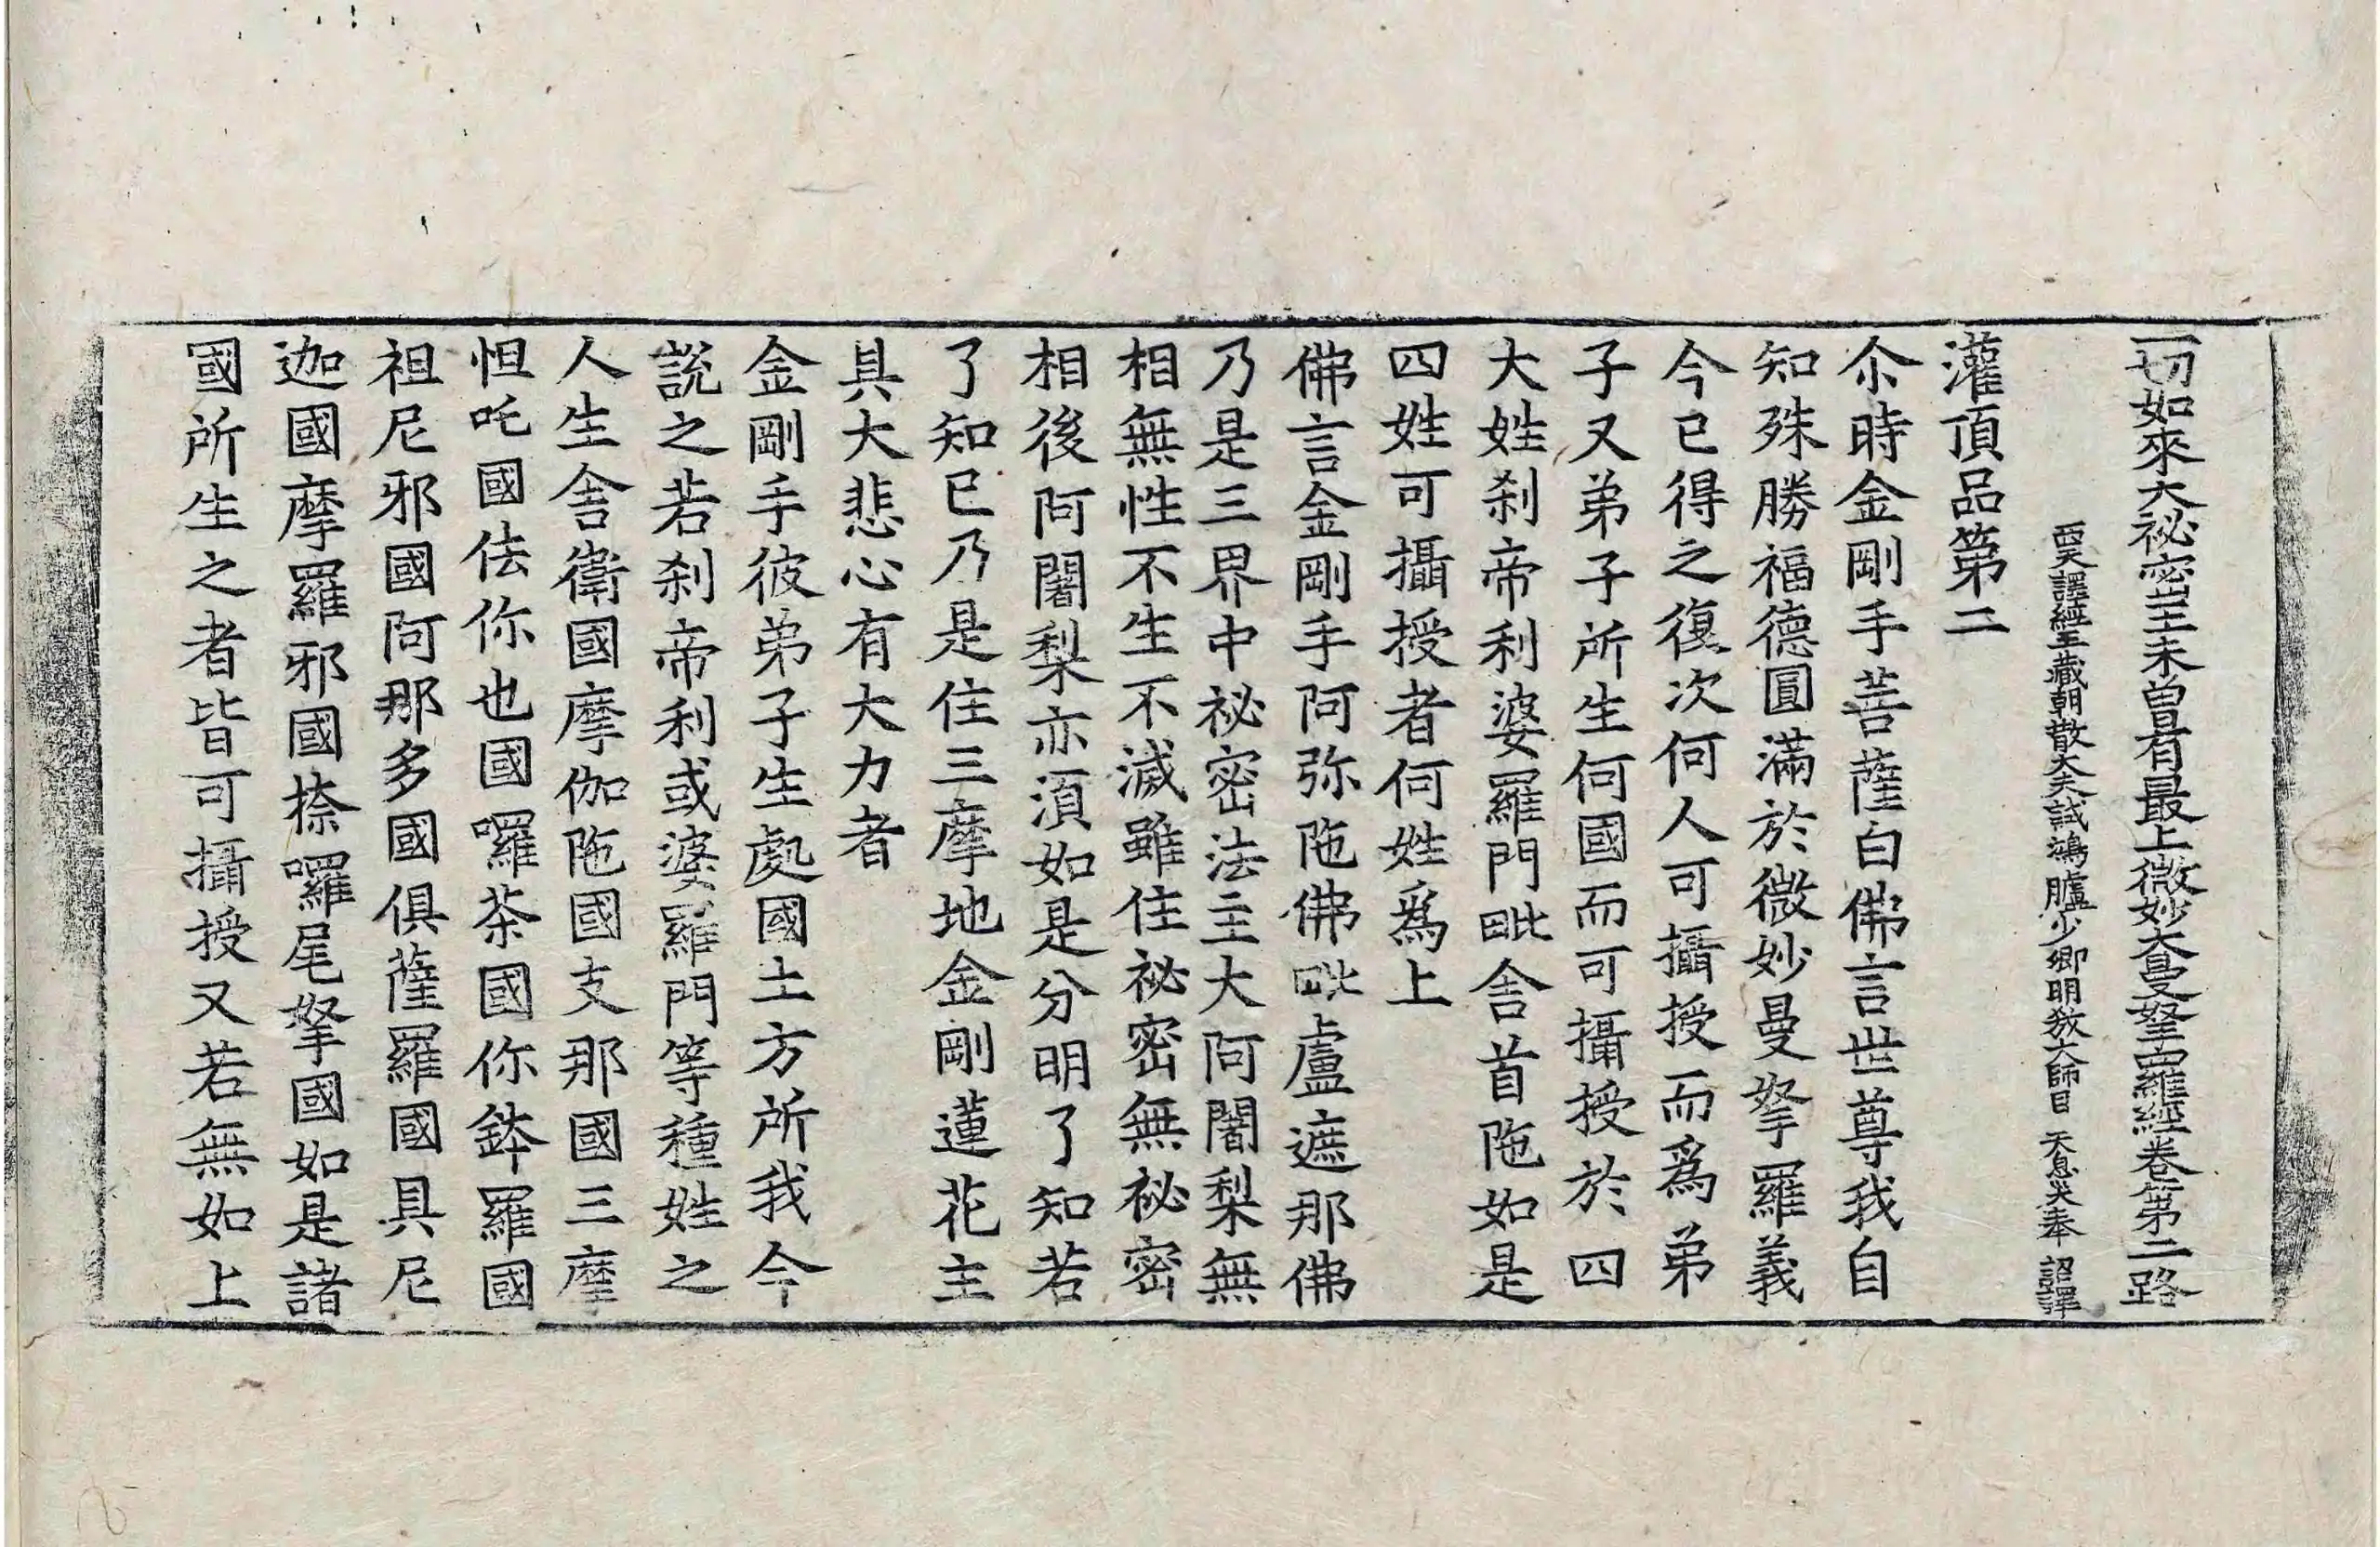 一切如來大祕密王未曾有最上微妙大曼拏羅經卷第二路
西天譯經三藏朝散大夫試鴻臚少卿明教大師臣天息災奉 詔譯
灌頂品第二
尒時金剛手菩薩白佛言世尊我自
知殊勝福德圓滿於微妙曼拏羅義
今已得之復次何人可攝授而爲弟
子又弟子所生何國而可攝授於四
大姓刹帝利婆羅門毗舍首陁如是
四姓可攝授者何姓爲上
佛言金剛手阿弥陁佛毗盧遮那佛
乃是三界中祕密法主大阿闍梨無
相無性不生不滅雖住祕密無祕密
相後阿闍梨亦須如是分明了知若
了知已乃是住三摩地金剛蓮花主
具大悲心有大力者
金剛手彼弟子生處國土方所我今
說之若刹帝利或婆羅門等種姓之
人生舍衛國摩伽陁國支那國三摩
怛吒國佉你也國囉茶國你鉢羅國
祖尼邪國阿那多國俱薩羅國具尼
迦國摩羅邪國捺囉尾拏國如是諸
國所生之者皆可攝授又若無如上